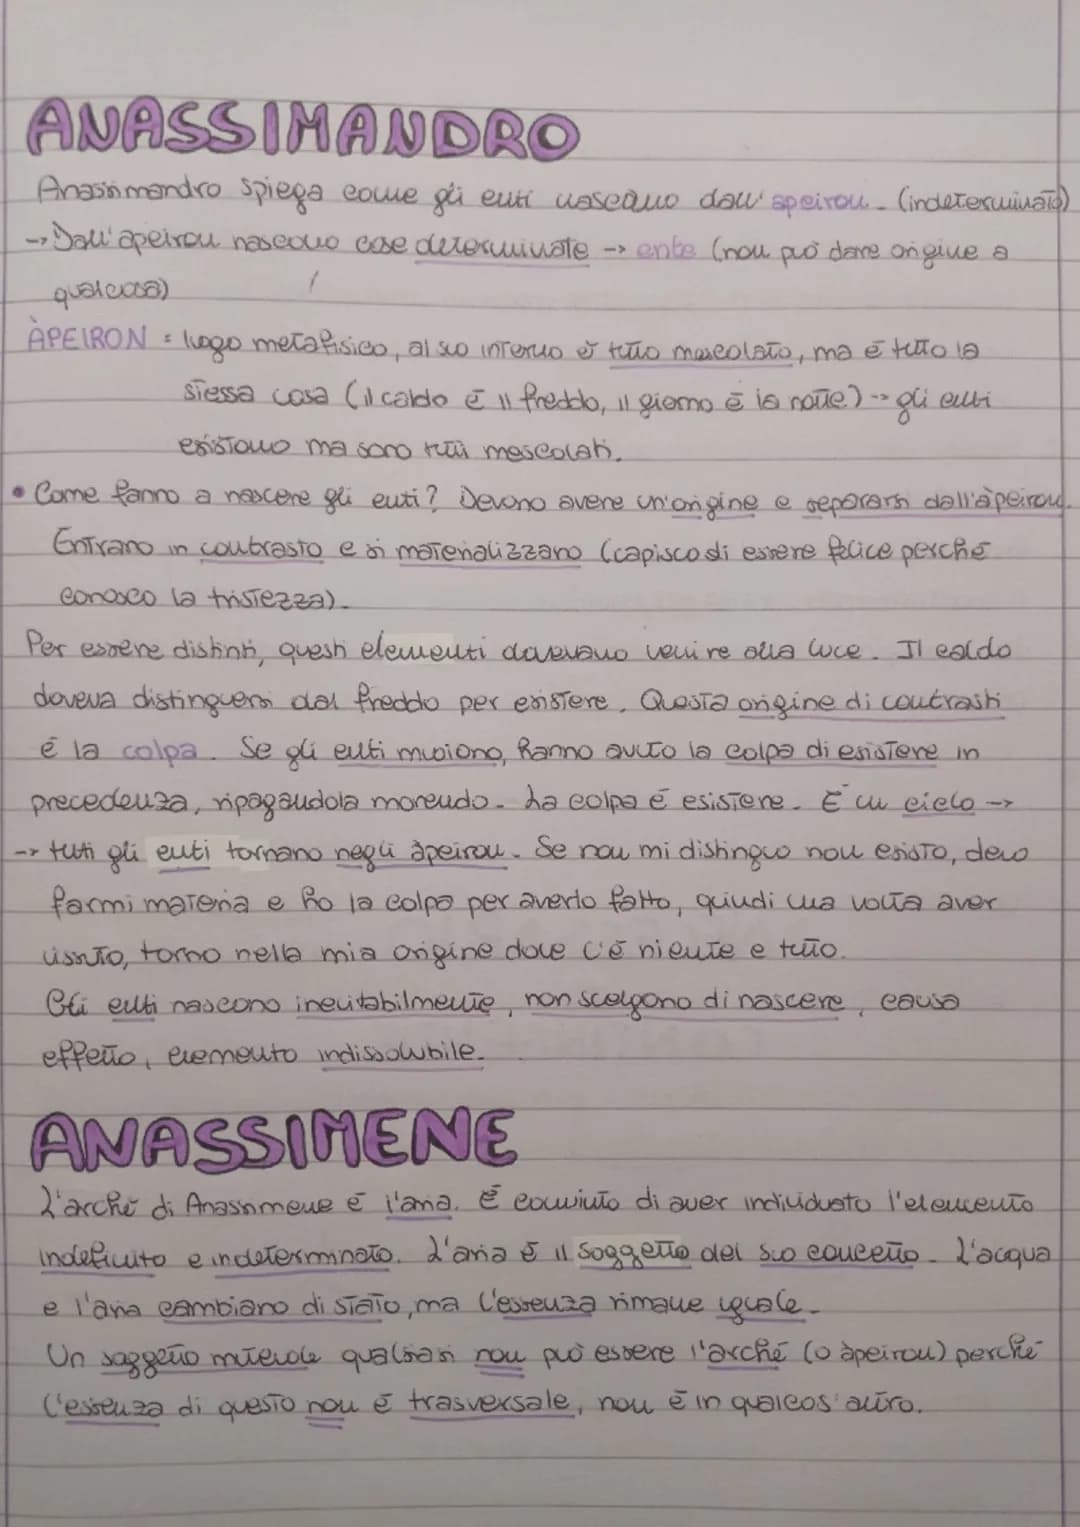 ANASSIMANDRO
Anassimandro spiega come gli enti nascano dall'apeiron. (indeterminato)
-> Dall'apeiron nascono cose determinate -> ente (non può dare origine a
qualcosa)
ÀPEIRON = luogo metafisico, al suo interno è tutto mescolato, ma è tutto la
stessa cosa (il caldo è il freddo, il giorno è la notte) -> gli enti
esistono ma sono tutti mescolati.
• Come fanno a nascere gli enti? Devono avere un'origine e separarsi dall'àpeiron.
Entrano in contrasto e si materializzano (capisco di essere felice perché
conosco la tristezza).
Per essere distinti, questi elementi dovevano venire alla luce. Il caldo
doveva distinguersi dal freddo per esistere. Questa origine di contrasti
é la colpa. Se gli enti muoiono, hanno avuto la colpa di esistere in
precedenza, ripagandola morendo. La colpa é esistere. È un ciclo ->
-> tutti gli enti tornano negli àpeiron. Se non mi distinguo non esisto, devo
farmi materia e ho la colpa per averlo fatto, quindi una volta aver
vissuto, torno nella mia origine dove c'é niente e tutto.
Gli enti nascono inevitabilmente, non scelgono di nascere, causa
effetto, elemento indissolubile.
ANASSIMENE
L'arché di Anassimene é l'aria. É convinto di aver individuato l'elemento
indefinito e indeterminato. L'aria é il soggetto del suo concetto. L'acqua
e l'aria cambiano di stato, ma l'essenza rimane uguale.
Un soggetto materiale qualsiasi non può essere l'arché (o àpeiron) perché
l'essenza di questo non é trasversale, non é in qualcos'altro.